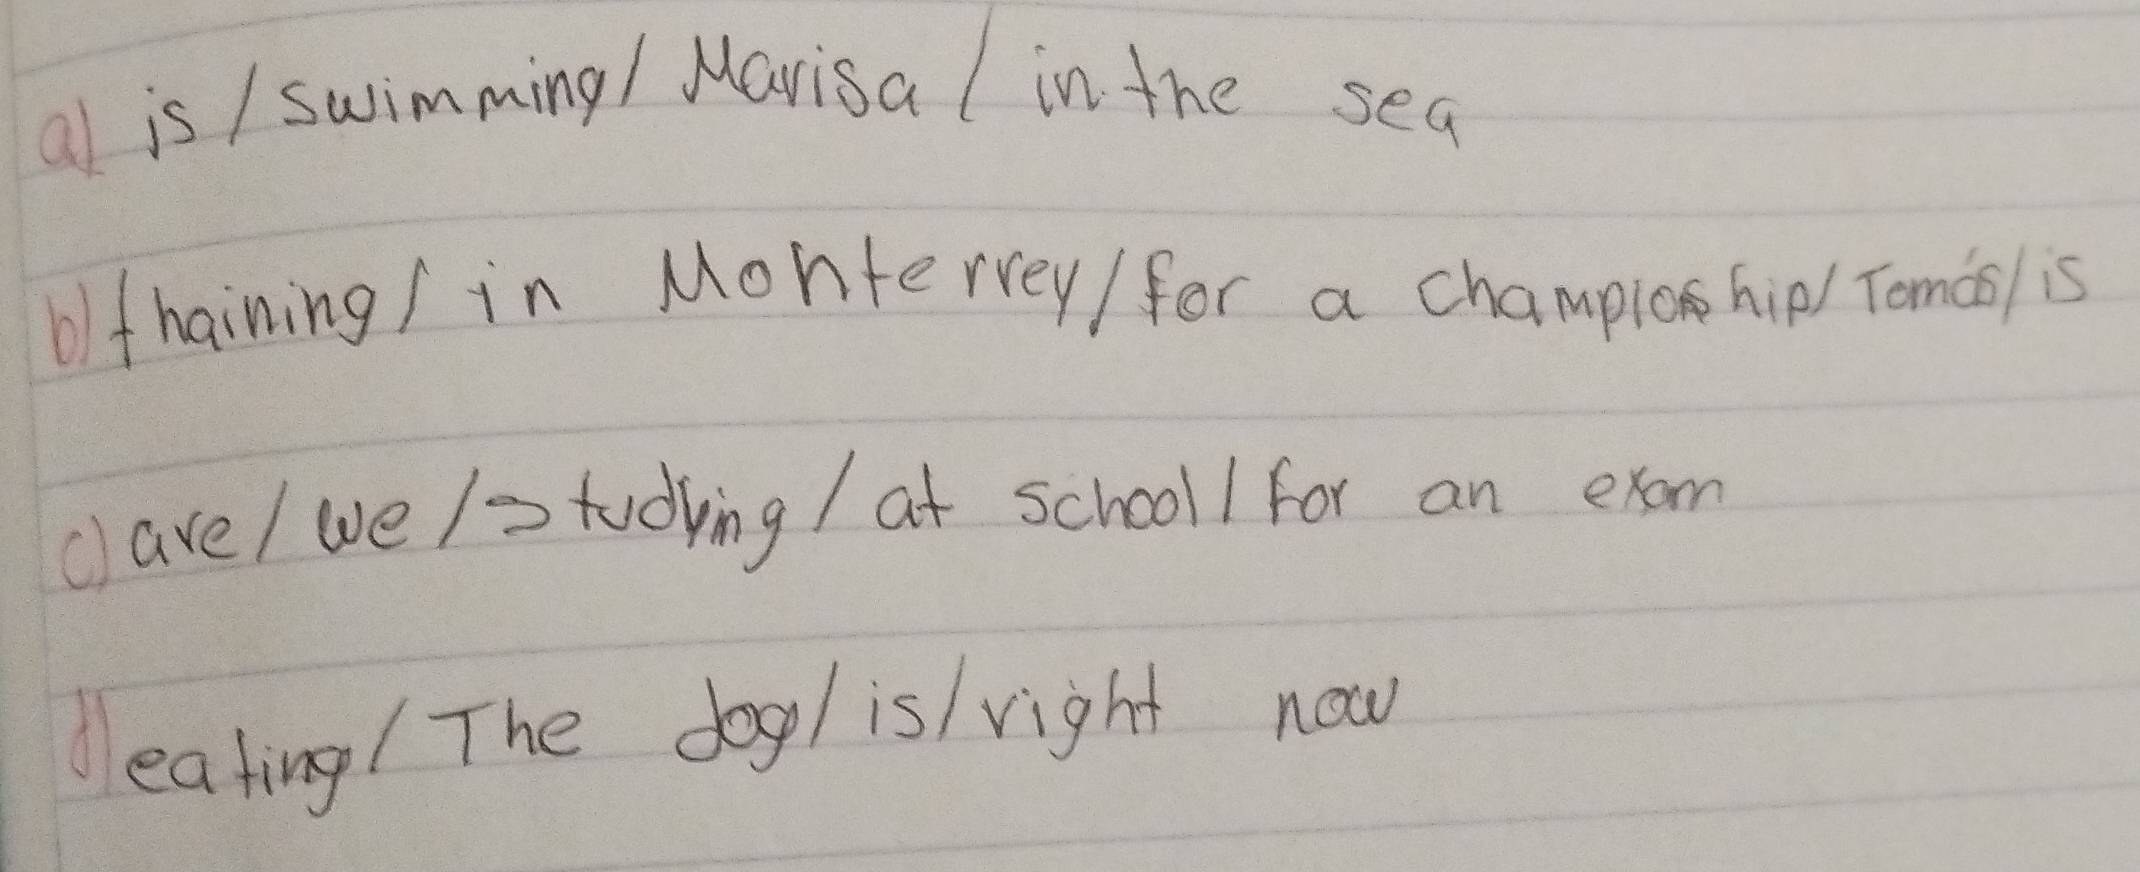 a) is / swimming / Marisa / in the sea
b) thaining / in Monterrey / for a championship / Tomás / is
c) are / we / studying / at school / for an exam
d) eating / The dog / is / right now